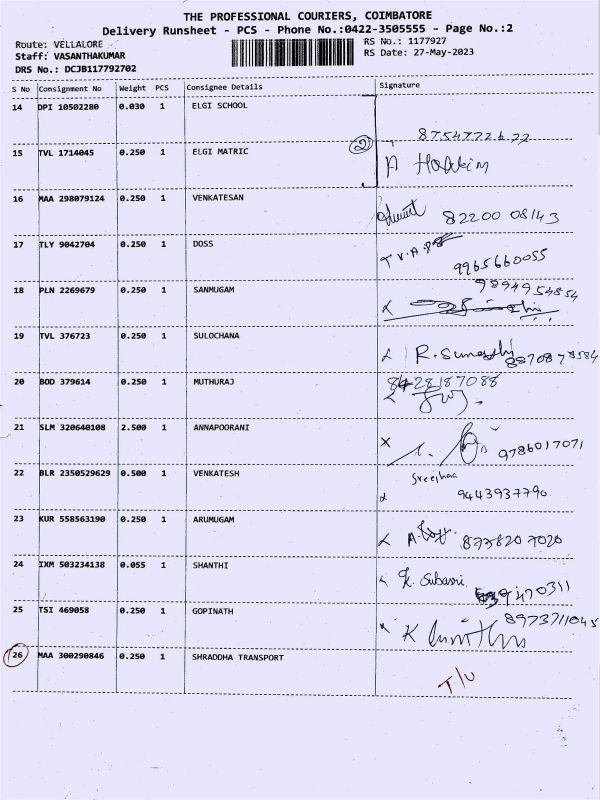 THE PROFESSIONAL COURIERS, COIMBATORE
Delivery Runsheet - PCS - Phone No.:0422-3505555 - Page No.:2
Route: VELLALORE RS No.: 1177927
Staff: VASANTHAKUMAR RS Date: 27-May-2023
DRS No.: DCJB117792702
S No Consignment No Weight PCS Consignee Details Signature
14 DPI 10502280 0.030 1 ELGI SCHOOL
15 TVL 1714045 0.250 1 ELGI MATRIC 2
16 MAA 298079124 0.250 1 VENKATESAN 82200 08143
17 TLY 9042704 0.250 1 DOSS 9965660055
18 PLN 2269679 0.250 1 SANMUGAM 9894954854
19 TVL 376723 0.250 1 SULOCHANA R. 8870878584
20 BOD 379614 0.250 1 MUTHURAJ 8428187088
21 SLM 320640108 2.500 1 ANNAPOORANI 9786017071
22 BLR 2350529629 0.500 1 VENKATESH 9443937790
23 KUR 558563190 0.250 1 ARUMUGAM 8778207020
24 IXM 503234138 0.055 1 SHANTHI
25 TSI 469058 0.250 1 GOPINATH 8973711045
26 MAA 300290846 0.250 1 SHRADDHA TRANSPORT T/U